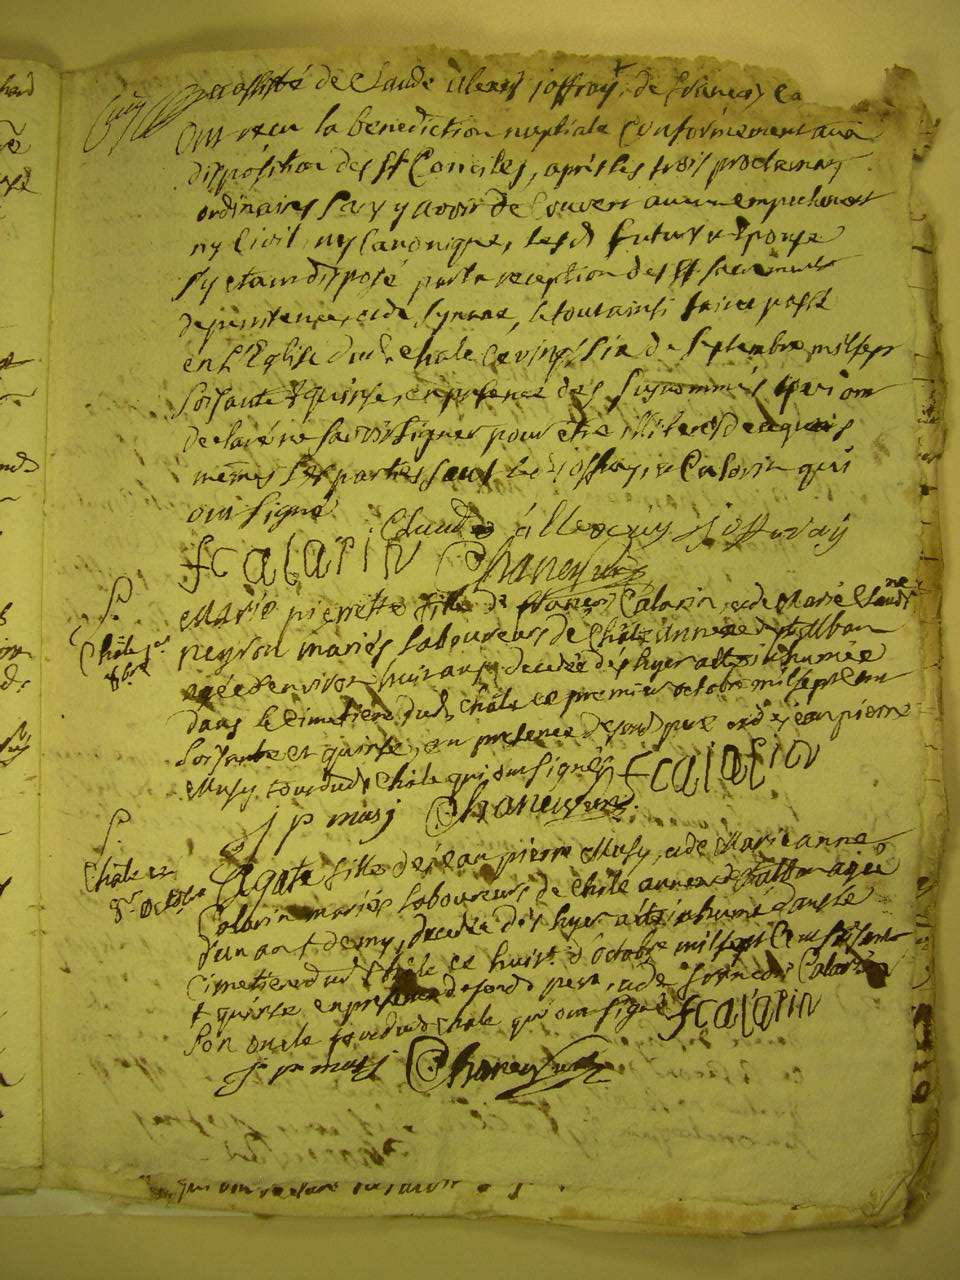 assisté de Claude Alexis Joffray, de François Ca
Ont reçu la benediction nuptiale Conformement aux
disposition des Sts Conciles, aprés les trois proclamaõns
ordinaires sans y avoir decouvert aucun empechement
ny Civil, ny Canonique, lesd. futurs Epouse
s'y etant disposé par la reception des Sts sacrements
de penitence, et de, le tout ainsi fait et passé
en L'Eglise dud. Châle ce vingt six de septembre mil sept
soisante & quinse, en presence des susnommés qui ont
declaré ne savoir signer pour etre illiterés de ce requis
mêmes Les parties sauf led. Joffray, et Calorin qui
ont signé
Claude àllexcis Joffray
f calarin Chaney curé
S.re
Châle 1er
8bre
Marie pierrette fille de françois Calarin, et de Marie Claudine
peyron mariés Laboureurs de Châle annexe de St Alban
agée d'environ huit ans, decedée dés hyer a eté inhumée
dans le cimetiere dud. Châle ce premier octobre mil sept cent
soisante et quinse, en presence de sond. pere et de jean pierre
Musy tous dud. Châle qui ont signés f calarin
j p musy Chaney curé
S.re
Châle et
8e octobre
Agate fille de jean pierre Musy, et de Marie anne
Calarin mariés Laboureurs de Châle annexe de St alban agée
d'un an et demy, decedée dés hyer a eté inhumé dans le
cimetiere dud. Châle ce huit d'octobre mil sept Cent soisante
& quinse en presence de sond. pere, et de françois Calarin
son oncle tous dud. Châle qui ont signé f calarin
j p musy Chaney curé
qui ont declaré ne savoir